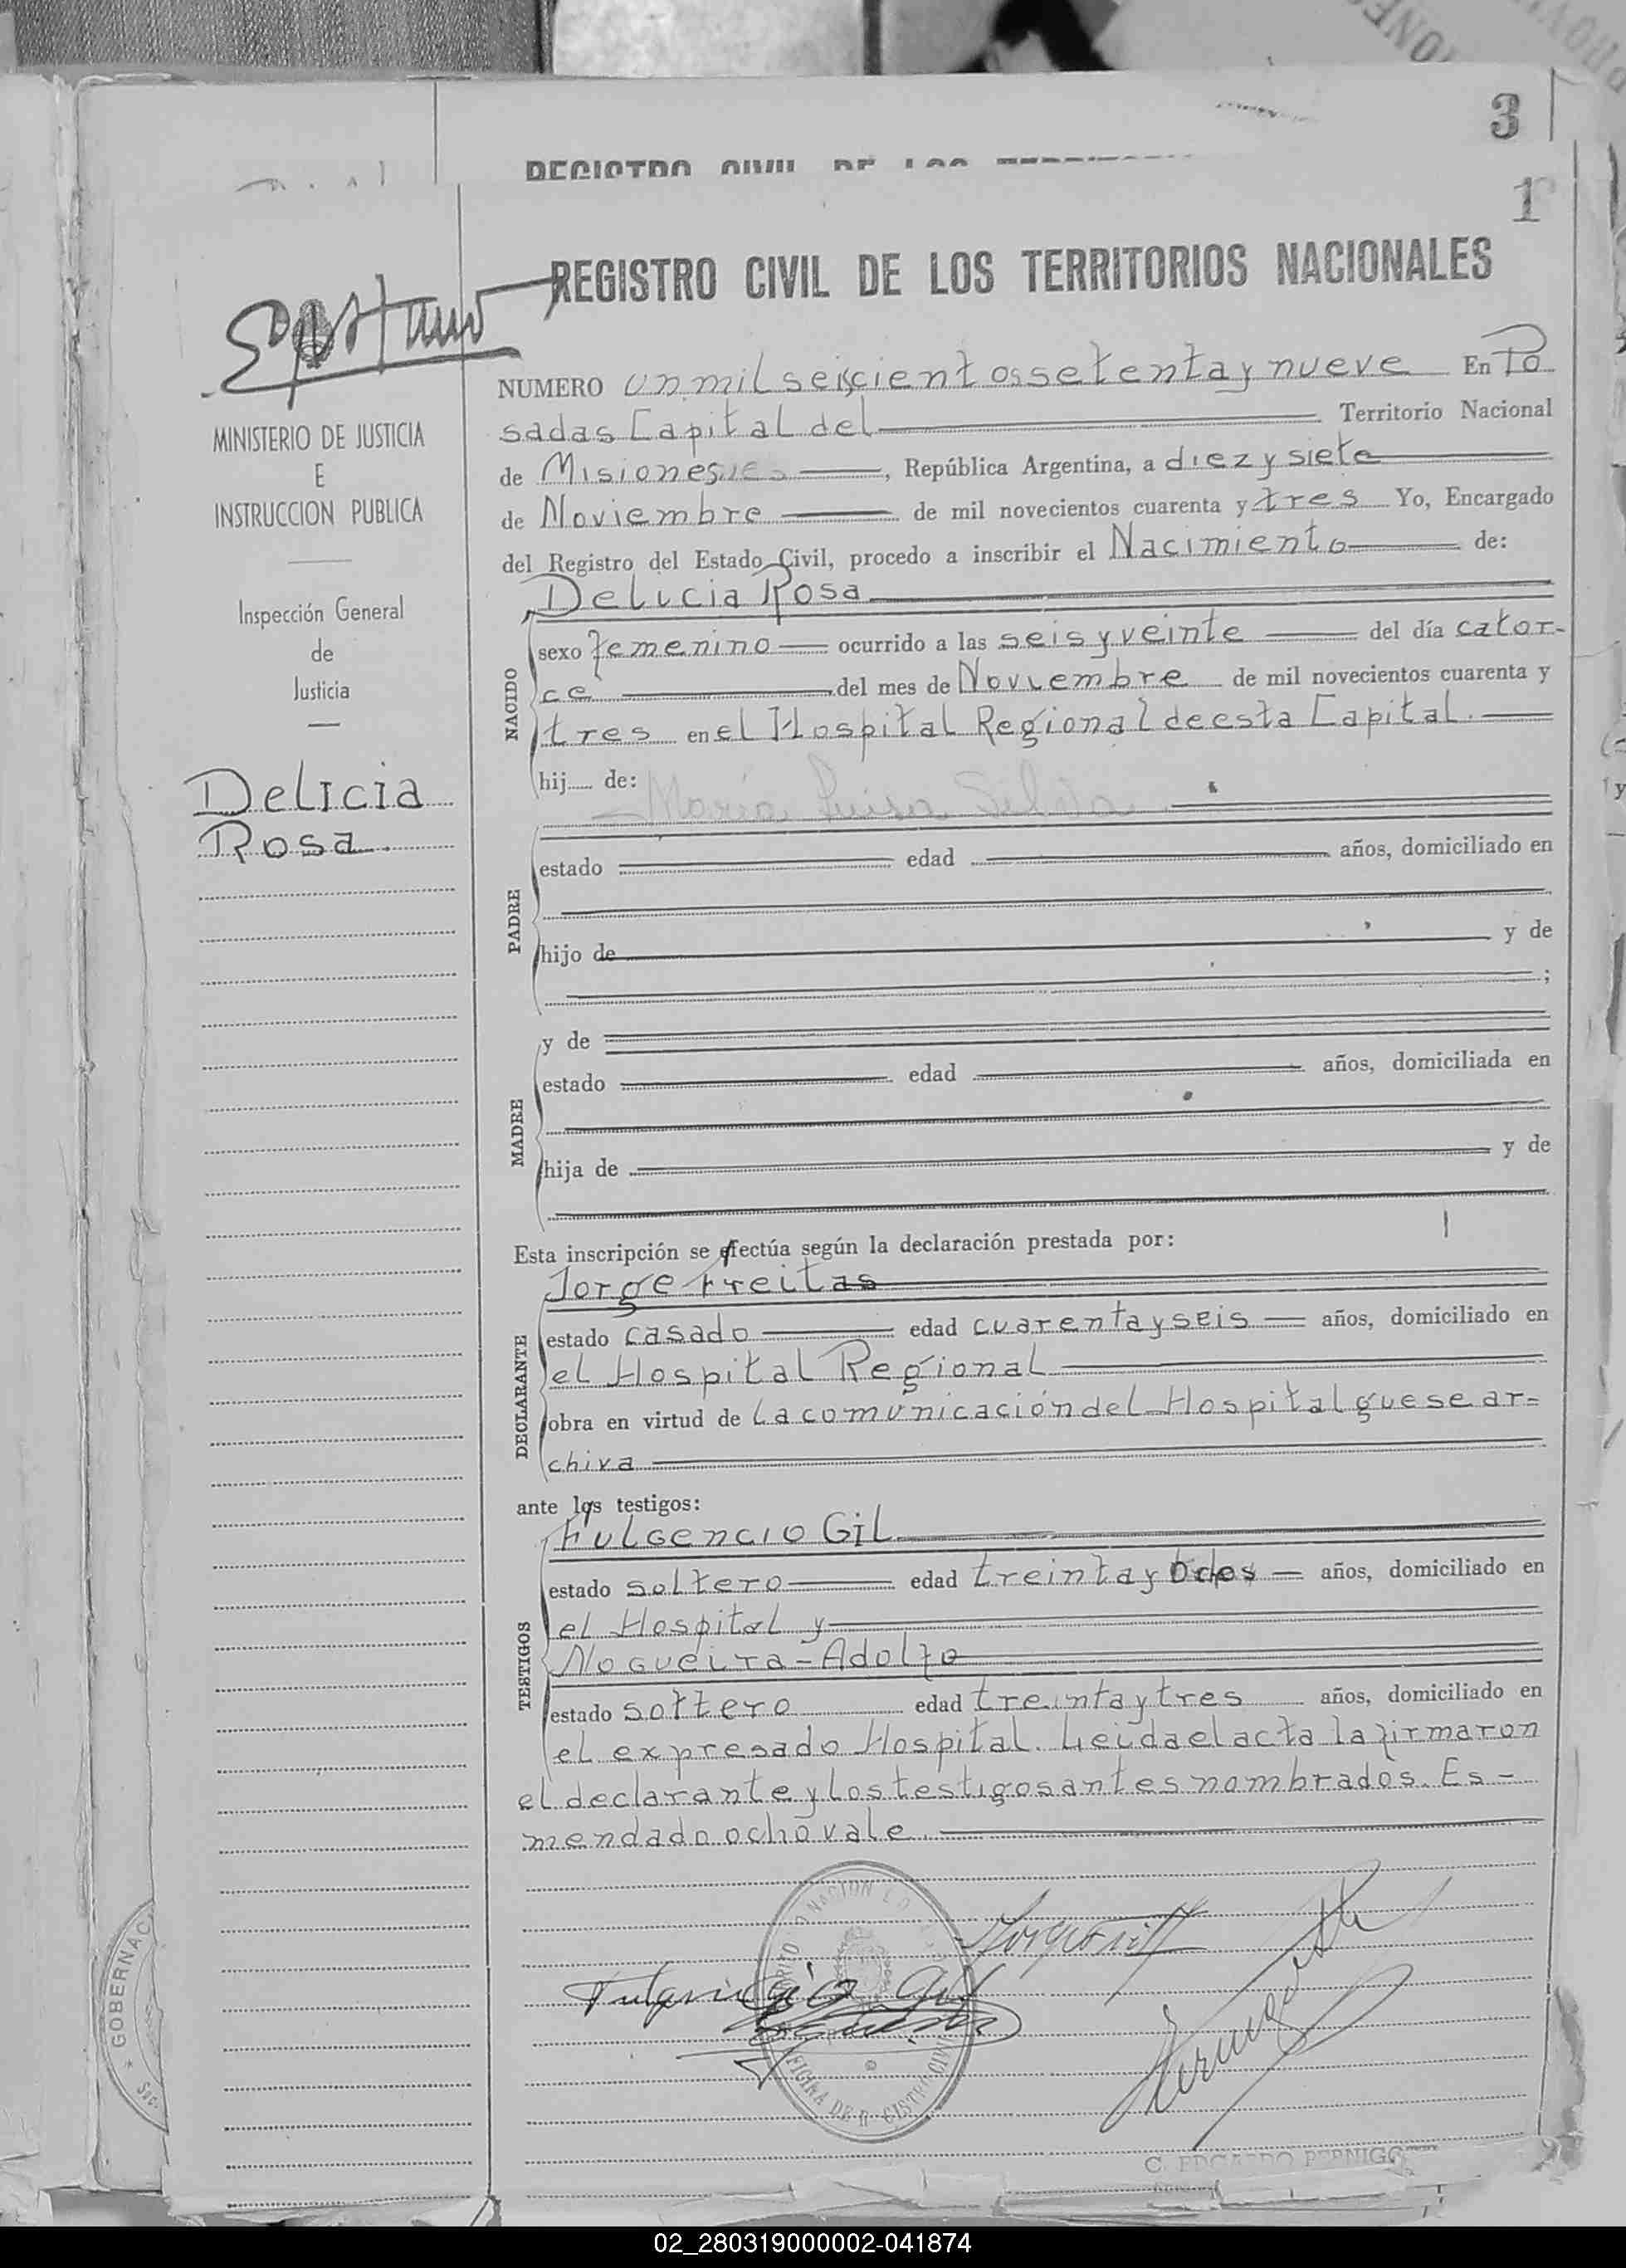 3
1
REGISTRO CIVIL DE LOS TERRITORIOS NACIONALES
MINISTERIO DE JUSTICIA
E
INSTRUCCION PUBLICA
Inspección General
de
Justicia
Delicia
Rosa
NUMERO un mil seiscientos setenta y nueve En Po
sadas Capital del Territorio Nacional
de Misiones, República Argentina, a diez y siete
de Noviembre de mil novecientos cuarenta y tres Yo, Encargado
del Registro del Estado Civil, procedo a inscribir el Nacimiento de:
Delicia Rosa
NACIDO
sexo femenino ocurrido a las seis y veinte del día cator-
ce del mes de Noviembre de mil novecientos cuarenta y
tres en el Hospital Regional de esta Capital.
hij de:
María Luisa Silva
PADRE
estado edad años, domiciliado en
hijo de y de
;
MADRE
y de
estado edad años, domiciliada en
hija de y de
Esta inscripción se efectúa según la declaración prestada por:
Jorge Freitas
DECLARANTE
estado casado edad cuarenta y seis años, domiciliado en
el Hospital Regional
obra en virtud de la comunicación del Hospital que se ar=
chiva
ante los testigos:
Fulgencio Gil
TESTIGOS
estado soltero edad treinta y años, domiciliado en
el Hospital y
Nogueira - Adolfo
estado soltero edad treinta y tres años, domiciliado en
el expresado Hospital. Leida el acta la firmaron
el declarante y los testigos antes nombrados. Es-
mendado ocho vale.
Fulgencio Gil
GOBERNAC
02_280319000002-041874